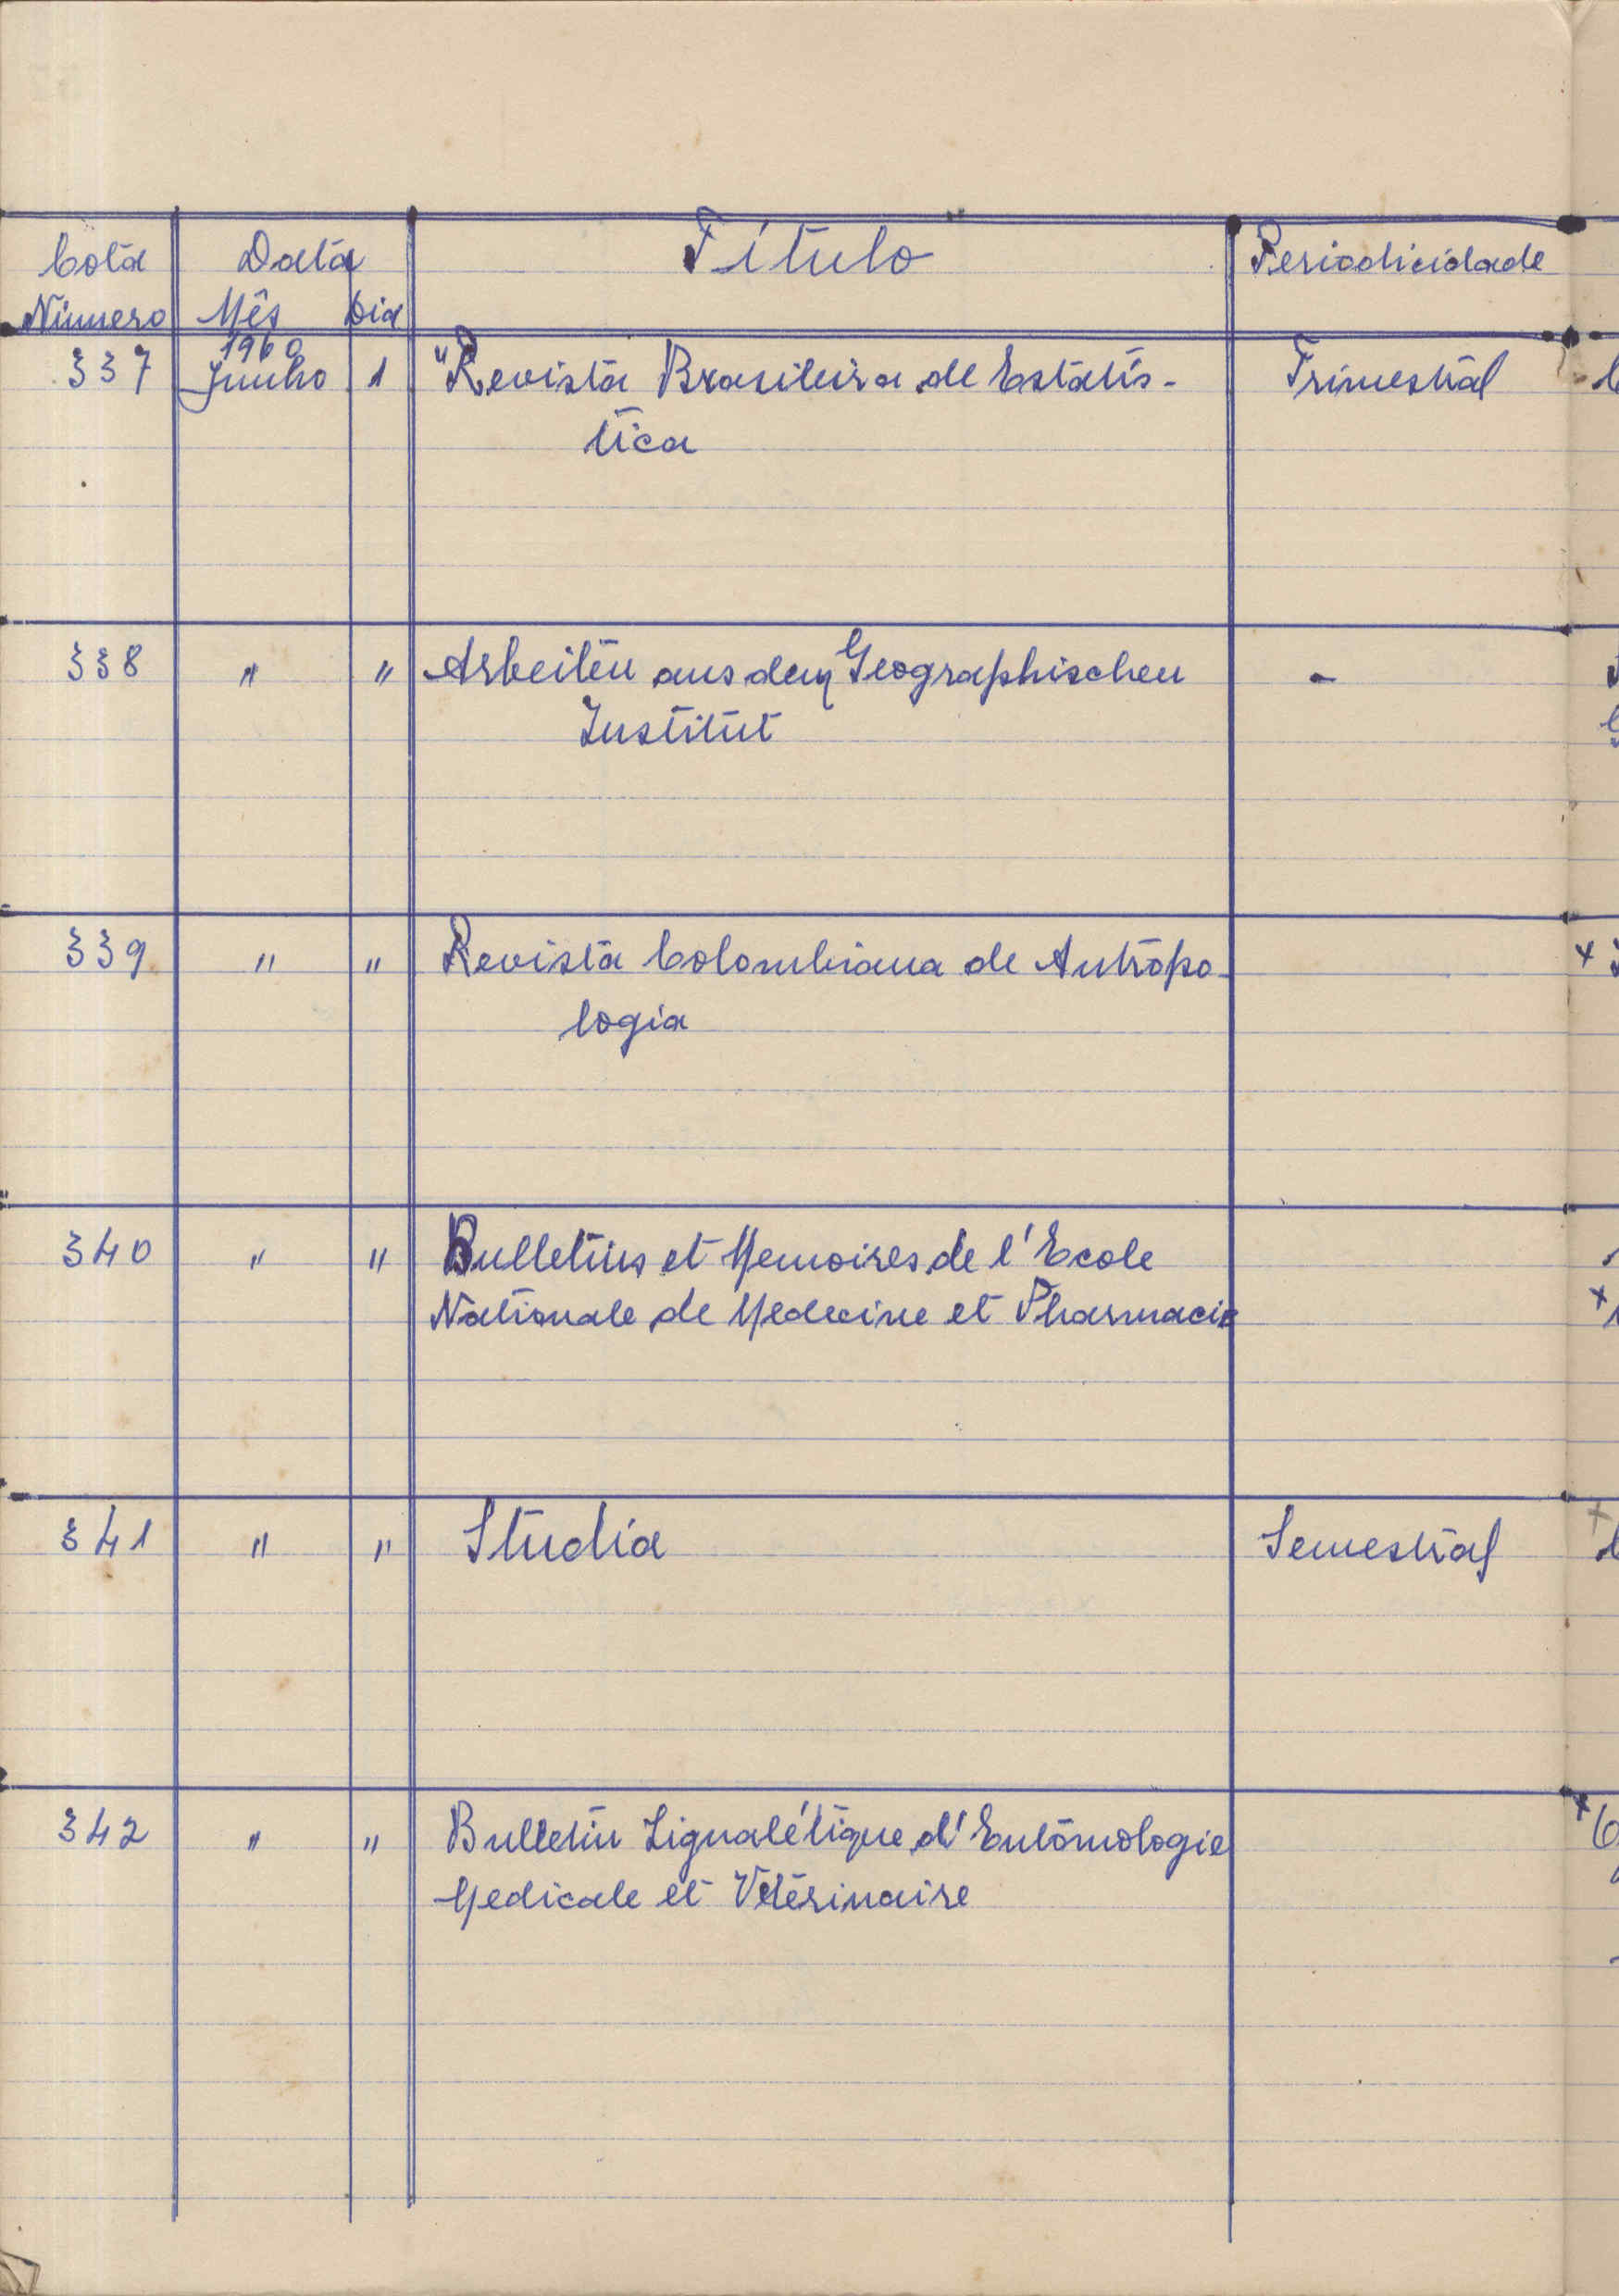 Cota Data Título Periodicidade
Número Mês Dia
1960
337 Junho 1 "Revista Brasileira de Estatís-
tica
Trimestral
338 " " Arbeiten aus dem Geographischen
Institut
-
339 " " Revista Colombiana de Antropo-
logia
340 " " Bulletins et Memoires de l'Ecole
Nationale de Medecine et Pharmacie
341 " " Studia Semestral
342 " " Bulletin Signalétique d'Entomologie
Medicale et Vetérinaire